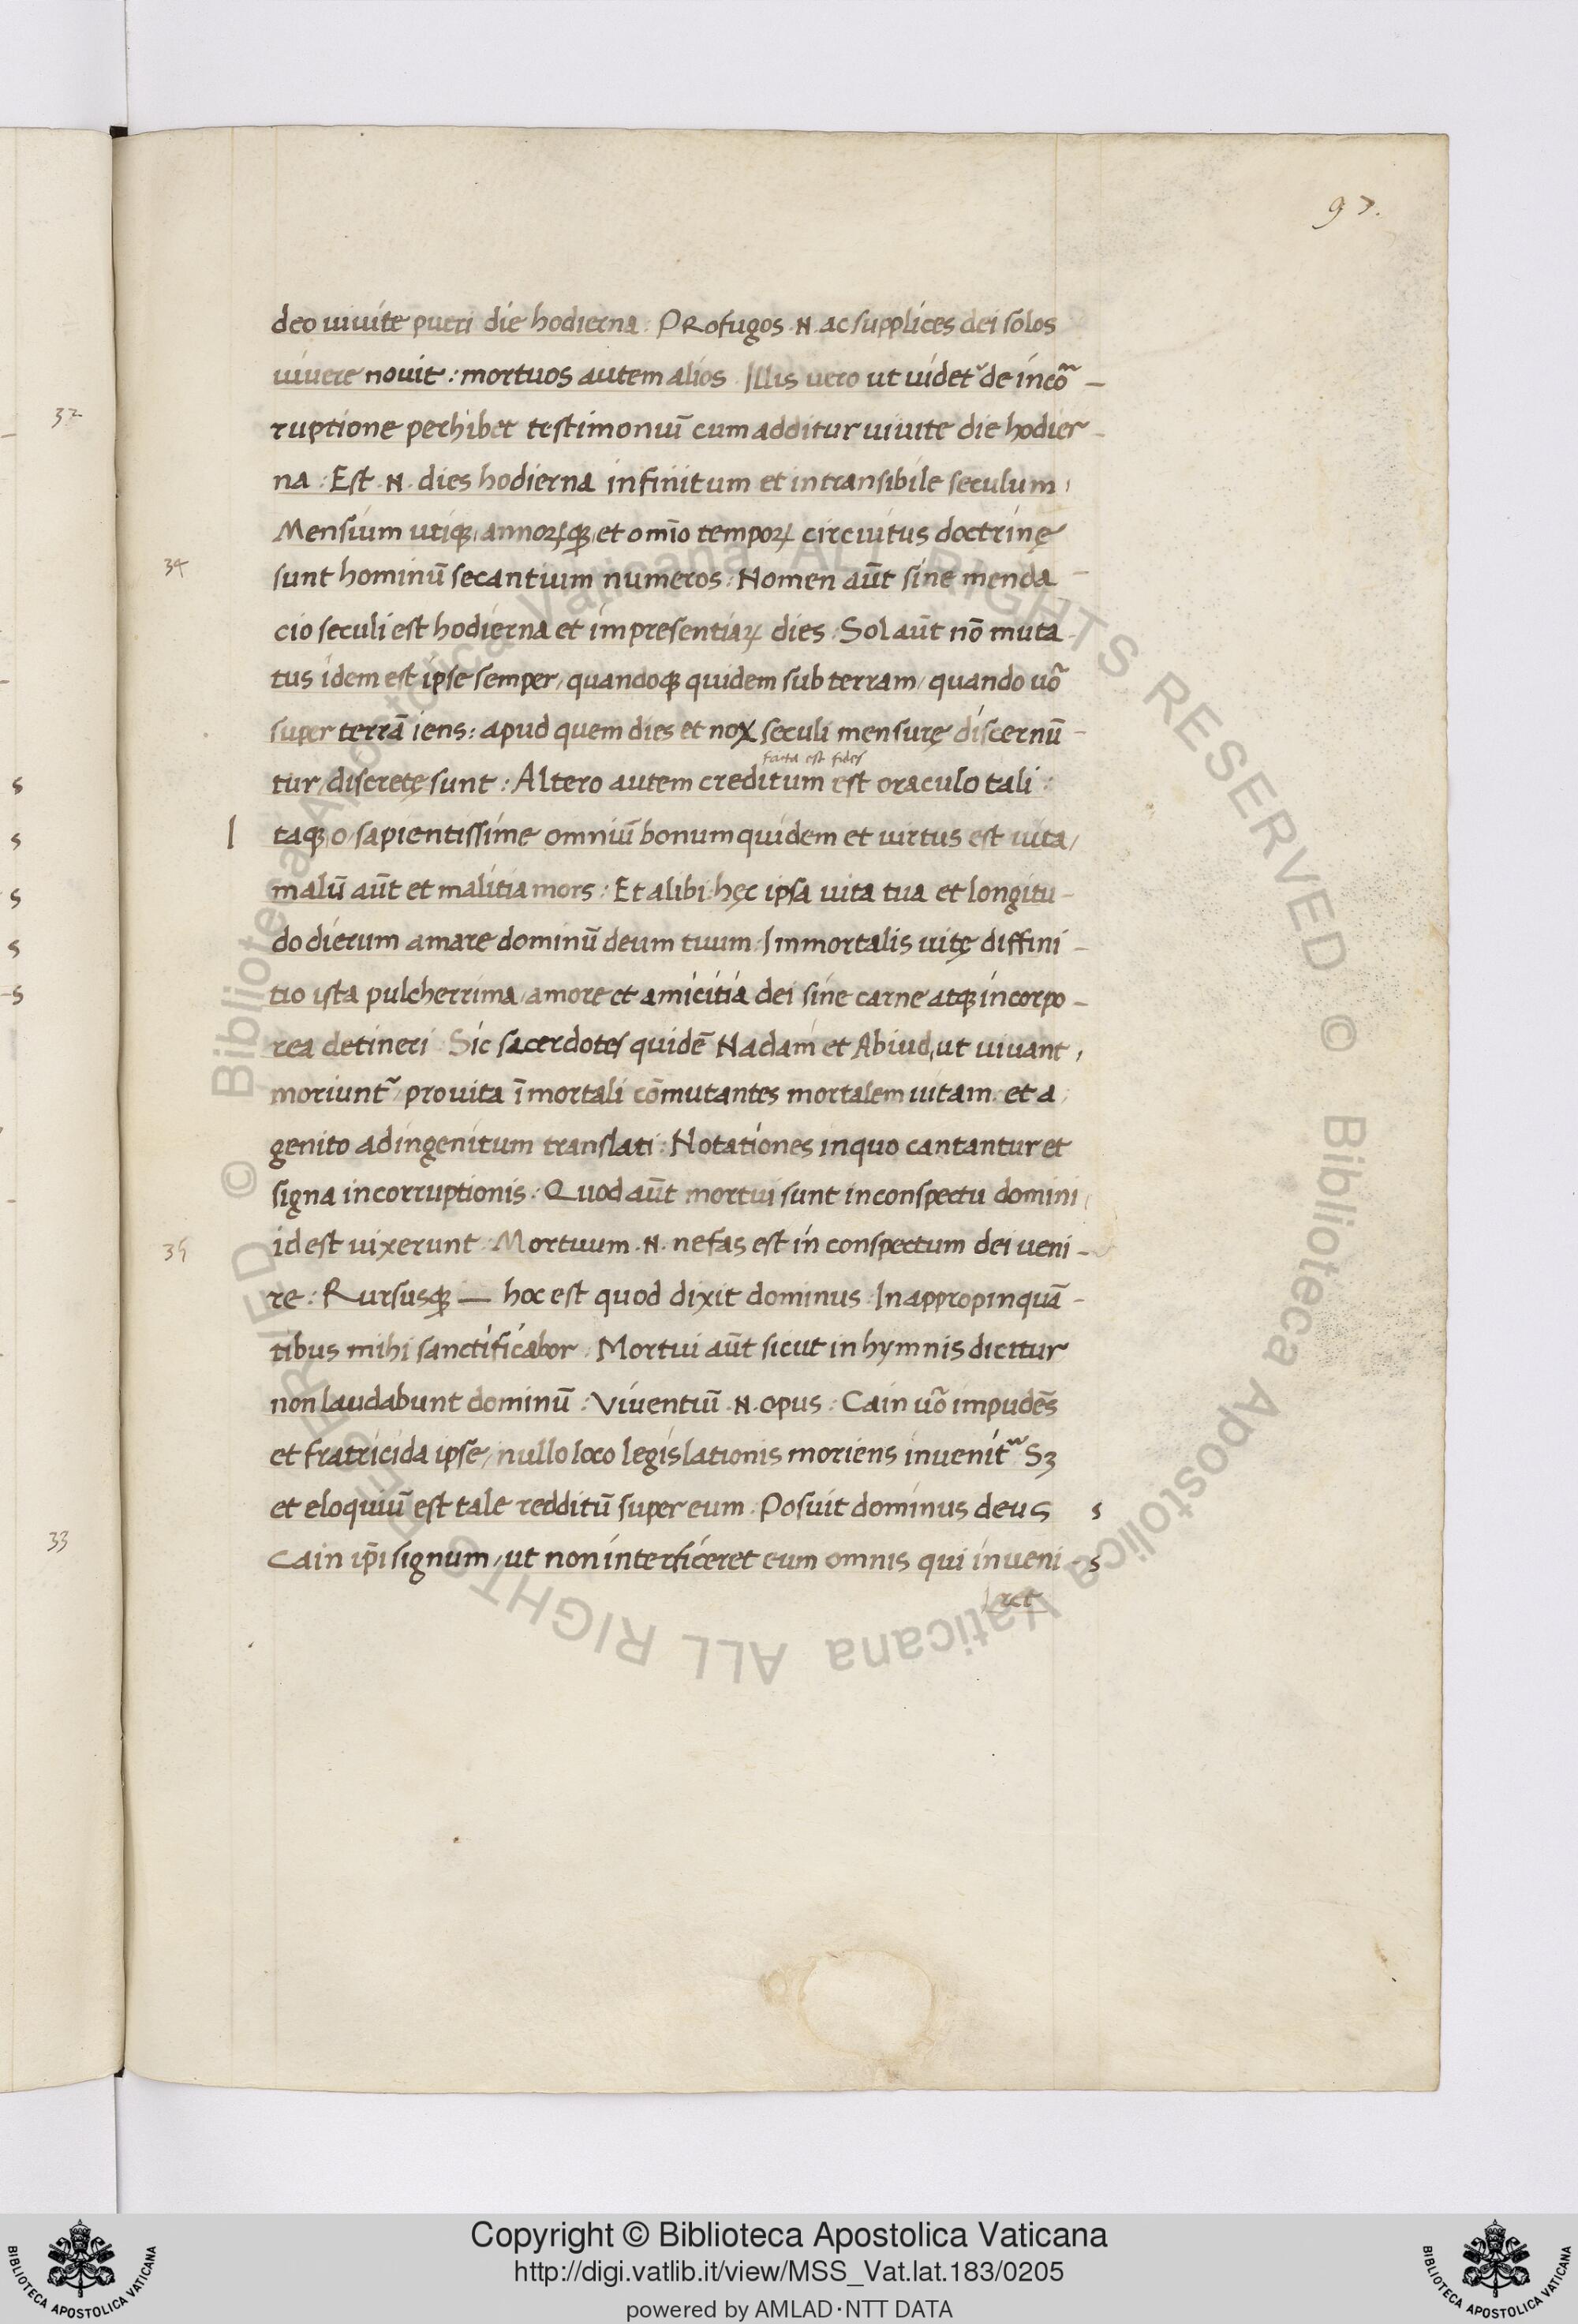 97.
deo uiuite pueri die hodierna : PRofugos .N. ac supplices dei solos
uiuere nouit : mortuos autem alios . Illis uero ut uidet᷑ de incõ —
ruptione perhibet testimoniũ cum additur uiuite die hodier -
na : Est .N. dies hodierna infinitum et intransibile seculum ,
Mensium utiqꝫ, annoꝝqꝫ, et omĩo tempoꝝ circuitus doctrinę
34
sunt hominũ secantium numeros : Nomen aũt sine menda -
cio seculi est hodierna et impresentiaꝝ dies : Sol aũt nõ muta -
tus idem est ipse semper / quandoqꝫ quidem sub terram / quando uõ
super terrã iens : apud quem dies et nox seculi mensurę discernũ -
facta est fides
tur / discretę sunt : Altero autem creditum est oraculo tali :
I taqꝫ o / sapientissime omniũ bonum quidem et uirtus est uita /
malũ aũt et malitia mors : Et alibi : hęc ipsa uita tua et longitu -
do dierum amare dominũ deum tuum : Immortalis uitę diffini -
tio ista pulcherrima / amore et amicitia dei sine carne atqꝫ incorpo -
rea detineri . Sic sacerdotes quidẽ Nadam et Abiud, ut uiuant ,
moriunt᷑ / pro uita ĩmortali cõmutantes mortalem uitam . et a
genito ad ingenitum translati : Notationes in quo cantantur et
signa incorruptionis : Quod aũt mortui sunt in conspectu domini /
35
id est uixerunt : Mortuum .N. nefas est in conspectum dei ueni -
re : Rursusqꝫ — hoc est quod dixit dominus : In appropinquã -
tibus mihi sanctificabor : Mortui aũt sicut in hymnis dicitur
non laudabunt dominũ : Viuentiũ .N. opus : Cain uõ impudẽs
et fratricida ipse / nullo loco legislationis moriens inuenit᷑ Sꝫ
et eloquiũ est tale redditũ super eum . Posuit dominus deus s
Cain ip̃i signum / ut non interficeret eum omnis qui inueni - s
ret
32
33
s
s
s
s
s
© Biblioteca Apostolica Vaticana ALL RIGHTS RESERVED © Biblioteca Apostolica Vaticana ALL RIGHTS RESERVED
Copyright © Biblioteca Apostolica Vaticana
http://digi.vatlib.it/view/MSS_Vat.lat.183/0205
powered by AMLAD·NTT DATA
BIBLIOTECA APOSTOLICA VATICANA
BIBLIOTECA APOSTOLICA VATICANA